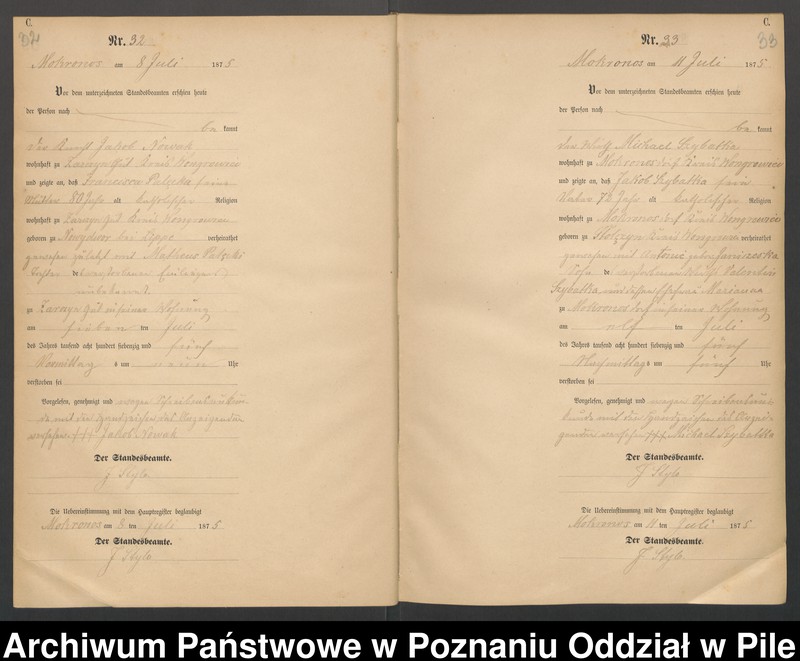 C.
32
Nr. 32
Mokronos am 8 Juli 1875
Vor dem unterzeichneten Standesbeamten erschien heute
der Person nach
be kannt
der Knecht Jakob Nowak
wohnhaft zu Zarczyn Gut Kreis Wongrowiec
und zeigte an, daß Francisca Palecka seine
Mutter 80 Jahr alt katholischer Religion
wohnhaft zu Kreis Wongrowiec
geboren zu bei verheirathet
gewesen zuletzt mit Matheus
Tochter des verstorbenen
unbekannt.
zu Gut in seiner Wohnung
am sieben ten Juli
des Jahres tausend acht hundert siebenzig und fünf
Vormittag s um neun Uhr
verstorben sei
Vorgelesen, genehmigt und wegen Schreibensunkun
de mit den Handzeichen des Anzeigenden
versehen +++ Jakob Nowak
Der Standesbeamte.
J Stylo
Die Uebereinstimmung mit dem Hauptregister beglaubigt
Mokronos am 8 ten Juli 1875
Der Standesbeamte.
J Stylo
C.
33
Nr. 33
Mokronos am 11 Juli 1875
Vor dem unterzeichneten Standesbeamten erschien heute
der Person nach
be kannt
der Wirth Michael Szybatka
wohnhaft zu Mokronos dorf Kreis Wongrowiec
und zeigte an, daß Jakob Szybatka sein
Vater 72 Jahr alt katholischer Religion
wohnhaft zu Mokronos dorf Kreis Wongrowiec
geboren zu Kreis Wongrowiec verheirathet
gewesen mit Antonie geborne
Sohn des verstorbenen Wirth Valentin
Szybatka und dessen Ehefrau Marianna
zu Mokronos dorf in seiner Wohnung
am elf ten Juli
des Jahres tausend acht hundert siebenzig und fünf
Nachmittag s um fünf Uhr
verstorben sei
Vorgelesen, genehmigt und wegen Schreibensun
kunde mit den Handzeichen des Anzei-
genden versehen +++ Michael Szybatka
Der Standesbeamte.
J Stylo
Die Uebereinstimmung mit dem Hauptregister beglaubigt
Mokronos am 11 ten Juli 1875
Der Standesbeamte.
J Stylo
Archiwum Państwowe w Poznaniu Oddział w Pile